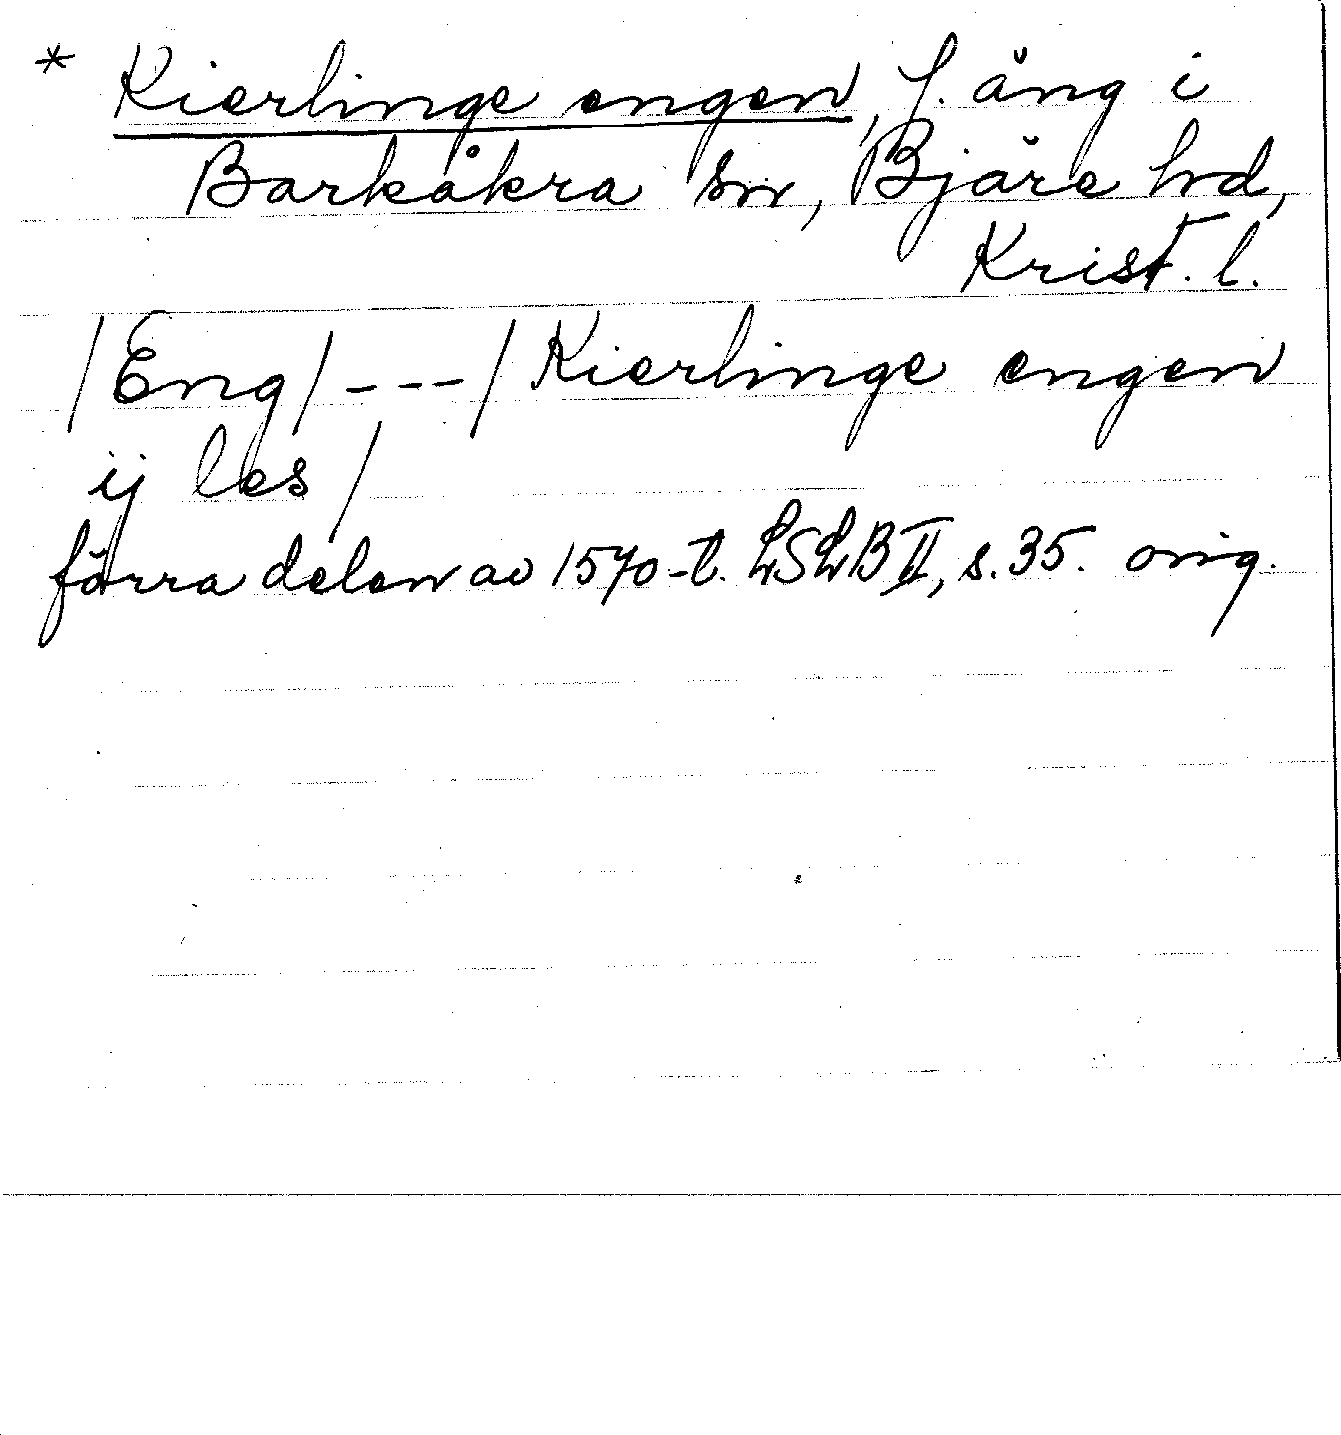 * Kierlinge engen, f. äng i
Barkåkra sn, Bjäre hd,
Krist. l.
/Eng/---/Kierlinge engen
ij les/
förra delen av 1570-t. LSLB II, s. 35. orig.